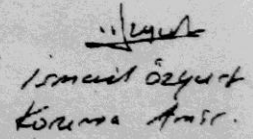 İsmail Özyurt
Koruma Amir.